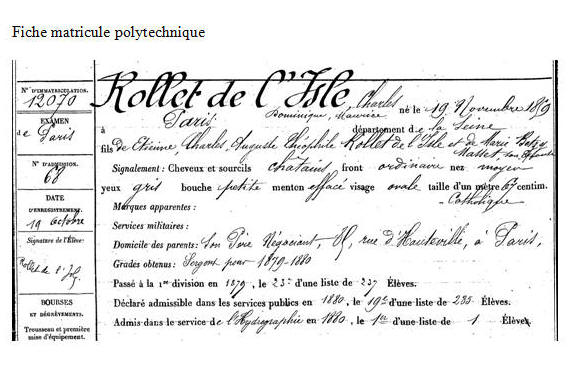 Fiche matricule polytechnique
N° D'IMMATRICULATION.
12070
EXAMEN
de Paris
N° D'ADMISSION.
63
DATE
D'ENREGISTREMENT.
19 octobre
Signature de l'Élève:
Rollet de l'Isle
BOURSES
ET DÉGRÈVEMENTS.
Trousseau et première
mise d'équipement.
Rollet de l'Isle, Charles
Dominique, Maurice né le 19 Novembre 1859
à Paris département de la Seine
fils de Etienne, Charles, Auguste Théophile Rollet de l'Isle et de Marie
Signalement : Cheveux et sourcils châtains, front ordinaire nez moyen
yeux gris bouche petite menton effacé visage ovale taille d'un mètre 67 centim.
Catholique
Marques apparentes :
Services militaires :
Domicile des parents : Son Père Négociant, rue d'Hauteville, à Paris,
Grades obtenus : Sergent pour 1879-1880
Passé à la 1re division en 1879, le 23e d'une liste de 237 Élèves.
Déclaré admissible dans les services publics en 1880, le 19e d'une liste de 235 Élèves.
Admis dans le service de l'Hydrographie en 1880, le 1er d'une liste de 1 Élève.